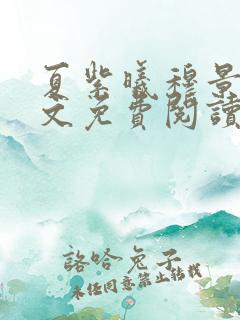 夏紫曦穆景
文免費閱讀
諮哈兔子
未经同意禁止转载